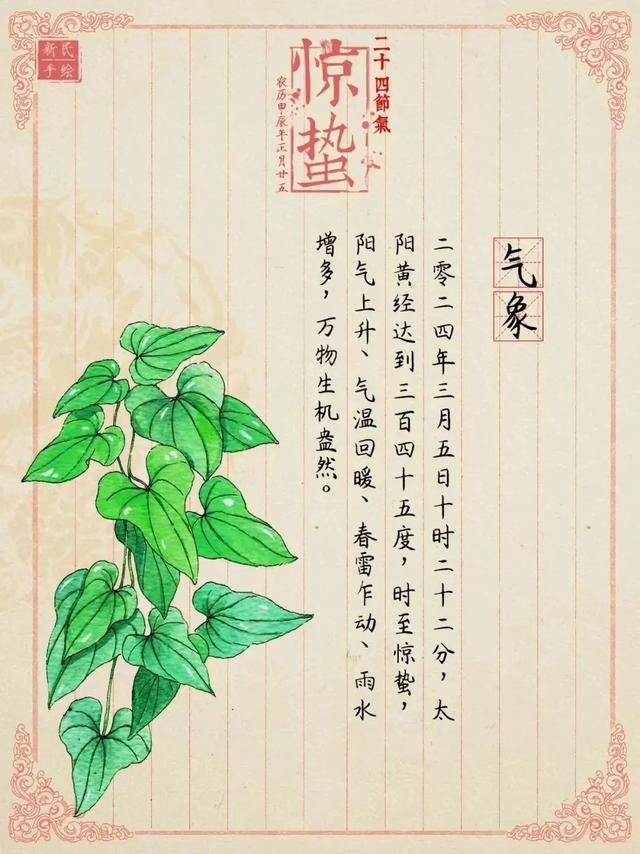 新民
手绘
二十四節氣
惊蛰
农历甲辰年正月廿五
气象
二零二四年三月五日十时二十二分，太
阳黄经达到三百四十五度，时至惊蛰，
阳气上升、气温回暖、春雷乍动、雨水
增多，万物生机盎然。